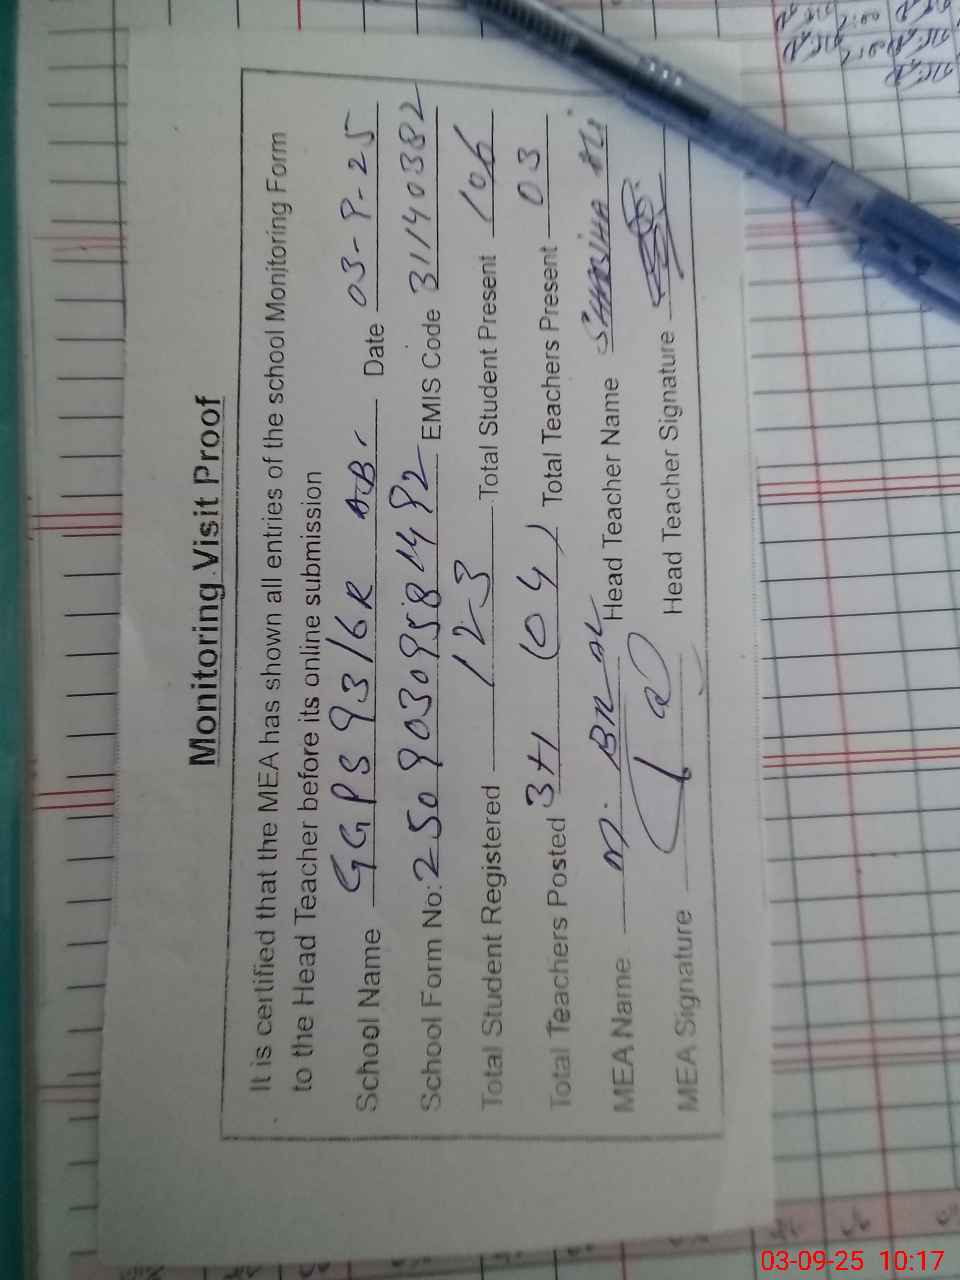 Monitoring Visit Proof
It is certified that the MEA has shown all entries of the school Monitoring Form
to the Head Teacher before its online submission
School Name GGPS 93/6R Date 03-9-25
School Form No: 2509030958 EMIS Code 31140382
Total Student Registered 123 Total Student Present 106
Total Teachers Posted 3+1 (04) Total Teachers Present 03
MEA Name M. Head Teacher Name
MEA Signature Head Teacher Signature
03-09-25 10:17